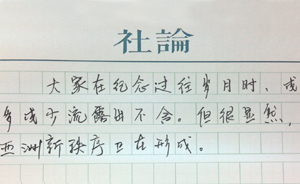 社論
大家在纪念过往岁月时，或
多或少流露出不舍。但很显然，
亚洲新秩序已在形成。